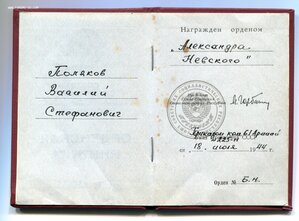 Поляков
Василий
Стефанович
Награжден орденом
„Александра
Невского"
Приказом ком. 61 Армией
№ 225-н
от „18" июля 1944 г.
Орден № Б.н.